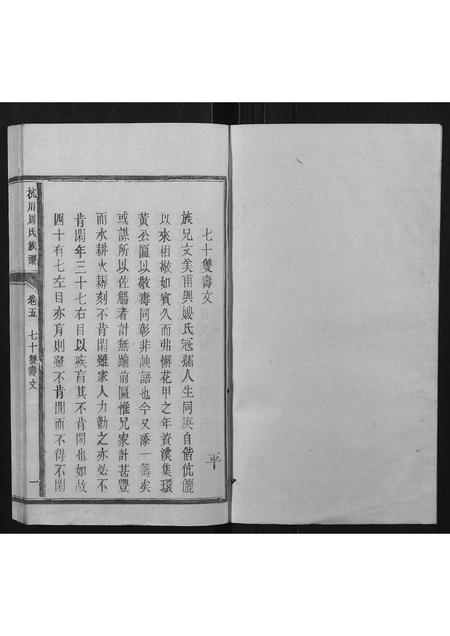 七十雙壽文
族兄文美甫與嫂氏冠孺人生同庚自偕伉儷
以來相敬如賓久而弗懈花甲之年資溪集環
黃丞區以敬壽同彰非諛語也今又添一籌矣
或謀所以佐觴者計無踰前區惟兄家計甚豐
而水耕火耨刻不肯閑雖家人力勸之亦必不
肯閑年三十七右目以疾盲其不肯閑也如故
四十有七左目亦肓則雖不肯閒而不得不閑
平
杭川周氏族譜
卷五
七十雙壽文
一